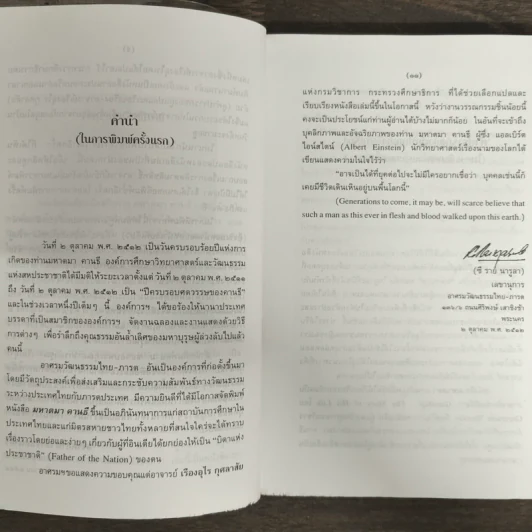 คำนำ
(ในการพิมพ์ครั้งแรก)
วันที่ ๒ ตุลาคม พ.ศ. ๒๕๑๒ เป็นวันครบรอบร้อยปีแห่งการ
เกิดของท่านมหาตมา คานธี องค์การศึกษาวิทยาศาสตร์และวัฒนธรรม
แห่งสหประชาชาติได้มีมติให้ระยะเวลาตั้งแต่ วันที่ ๒ ตุลาคม พ.ศ. ๒๕๑๑
ถึง วันที่ ๒ ตุลาคม พ.ศ. ๒๕๑๒ เป็น “ปีครบรอบศตวรรษของคานธี”
และในช่วงเวลาหนึ่งปีเต็มๆ นี้ องค์การฯ ได้ขอร้องให้นานาประเทศ
บรรดาที่เป็นสมาชิกขององค์การฯ จัดงานฉลองและงานแสดงด้วยวิธี
การต่างๆ เพื่อรำลึกถึงคุณธรรมอันล้ำเลิศของมหาบุรุษผู้ล่วงลับไปแล้ว
คนนี้
อาศรมวัฒนธรรมไทย-ภารต อันเป็นองค์การที่ก่อตั้งขึ้นมา
โดยมีวัตถุประสงค์เพื่อส่งเสริมและกระชับความสัมพันธ์ทางวัฒนธรรม
ระหว่างประเทศไทยกับภารตประเทศ มีความยินดีที่ได้มีโอกาสจัดพิมพ์
หนังสือ มหาตมา คานธี ขึ้นเป็นอภินันทนาการแก่สถาบันการศึกษาใน
ประเทศไทยและแก่มิตรสหายชาวไทยทั้งหลายที่สนใจใคร่จะได้ทราบ
เรื่องราวโดยย่อและง่ายๆ เกี่ยวกับผู้ที่อินเดียได้ยกย่องให้เป็น “บิดาแห่ง
ประชาชาติ” (Father of the Nation) ของตน
อาศรมฯขอแสดงความขอบคุณแด่อาจารย์ เรืองอุไร กุศลาสัย
(๑๑)
แห่งกรมวิชาการ กระทรวงศึกษาธิการ ที่ได้ช่วยเลือกแปลและ
เรียบเรียงหนังสือเล่มนี้ขึ้นในโอกาสนี้ หวังว่างานวรรณกรรมชิ้นน้อยนี้
คงจะเป็นประโยชน์แก่ท่านผู้อ่านได้บ้างไม่มากก็น้อย ในอันที่จะเข้าถึง
บุคลิกภาพและอัจฉริยภาพของท่าน มหาตมา คานธี ผู้ซึ่ง แอลเบิร์ต
ไอน์สไตน์ (Albert Einstein) นักวิทยาศาสตร์เรืองนามของโลกได้
เขียนแสดงความในใจไว้ว่า
“อาจเป็นได้ที่ยุคต่อไปจะไม่มีใครอยากเชื่อว่า บุคคลเช่นนี้ก็
เคยมีชีวิตเดินเหินอยู่บนพื้นโลกนี้”
(Generations to come, it may be, will scarce believe that
such a man as this ever in flesh and blood walked upon this earth.)
(ซี ราย นารูลา)
เลขานุการ
อาศรมวัฒนธรรมไทย-ภารต
ถนนศิริพงษ์ เสาชิงช้า
พระนคร
๒ ตุลาคม พ.ศ. ๒๕๑๒